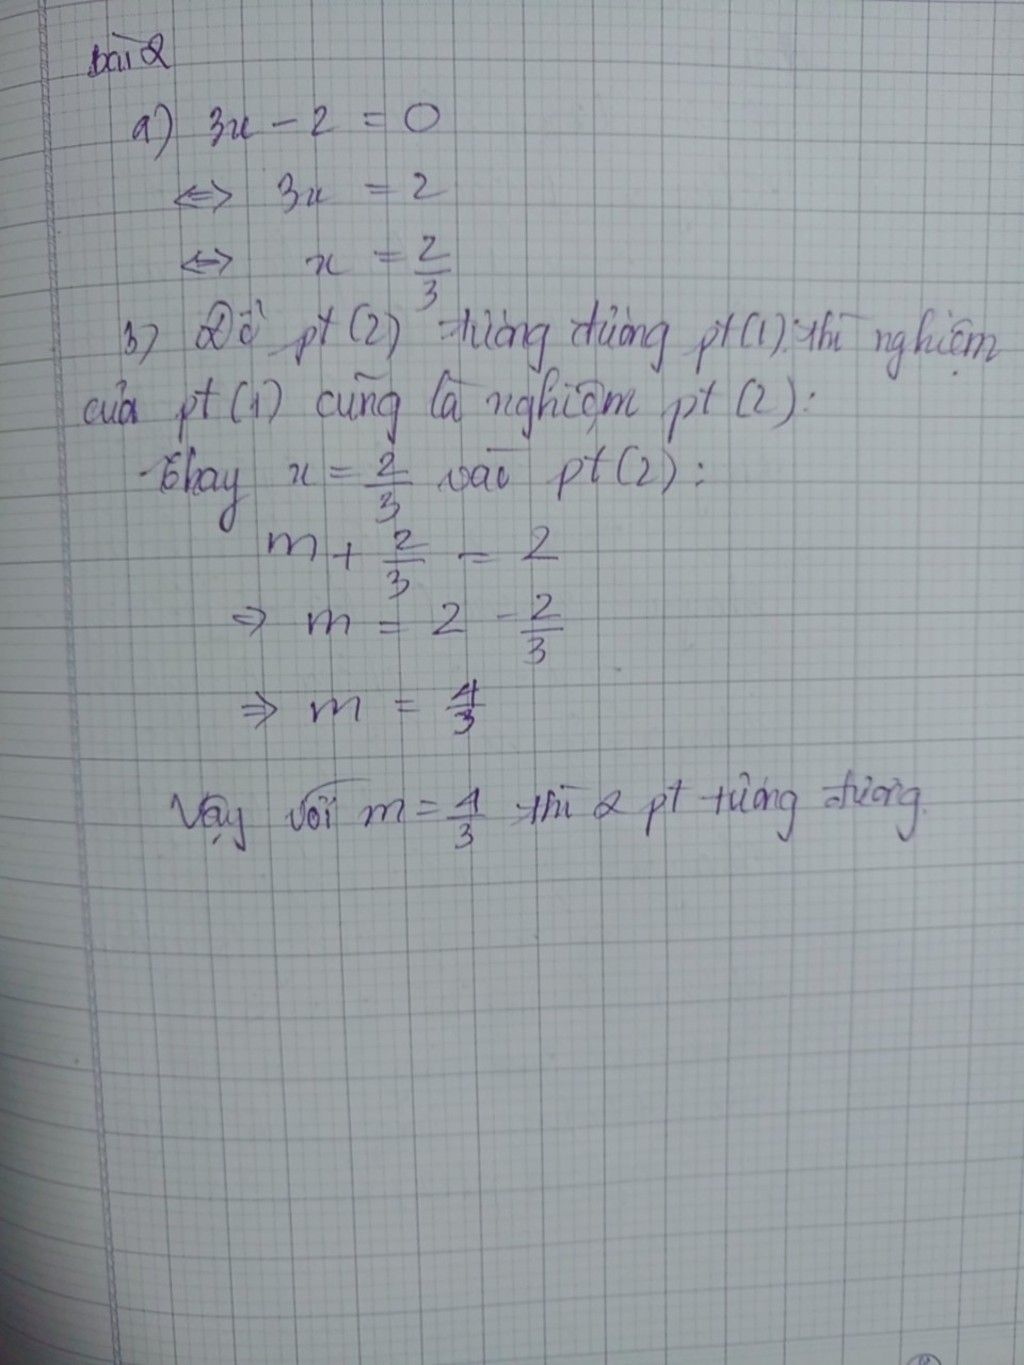 bài 2
a) 3x - 2 = 0
⇔ 3x = 2
⇔ x = 2/3
b) Để pt (2) tương đương pt (1) thì nghiệm
của pt (1) cũng là nghiệm pt (2):
Thay x = 2/3 vào pt (2):
m + 2/3 = 2
⇒ m = 2 - 2/3
⇒ m = 4/3
Vậy với m = 4/3 thì 2 pt tương đương.